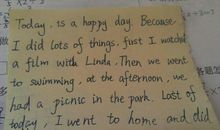 Today, is a happy day. Because
I did lots of things, fust I watched
a film with Linda. Then we went
to swimming, at the afternoon, we
had a picnic in the park. Last of
today, I went to home and did